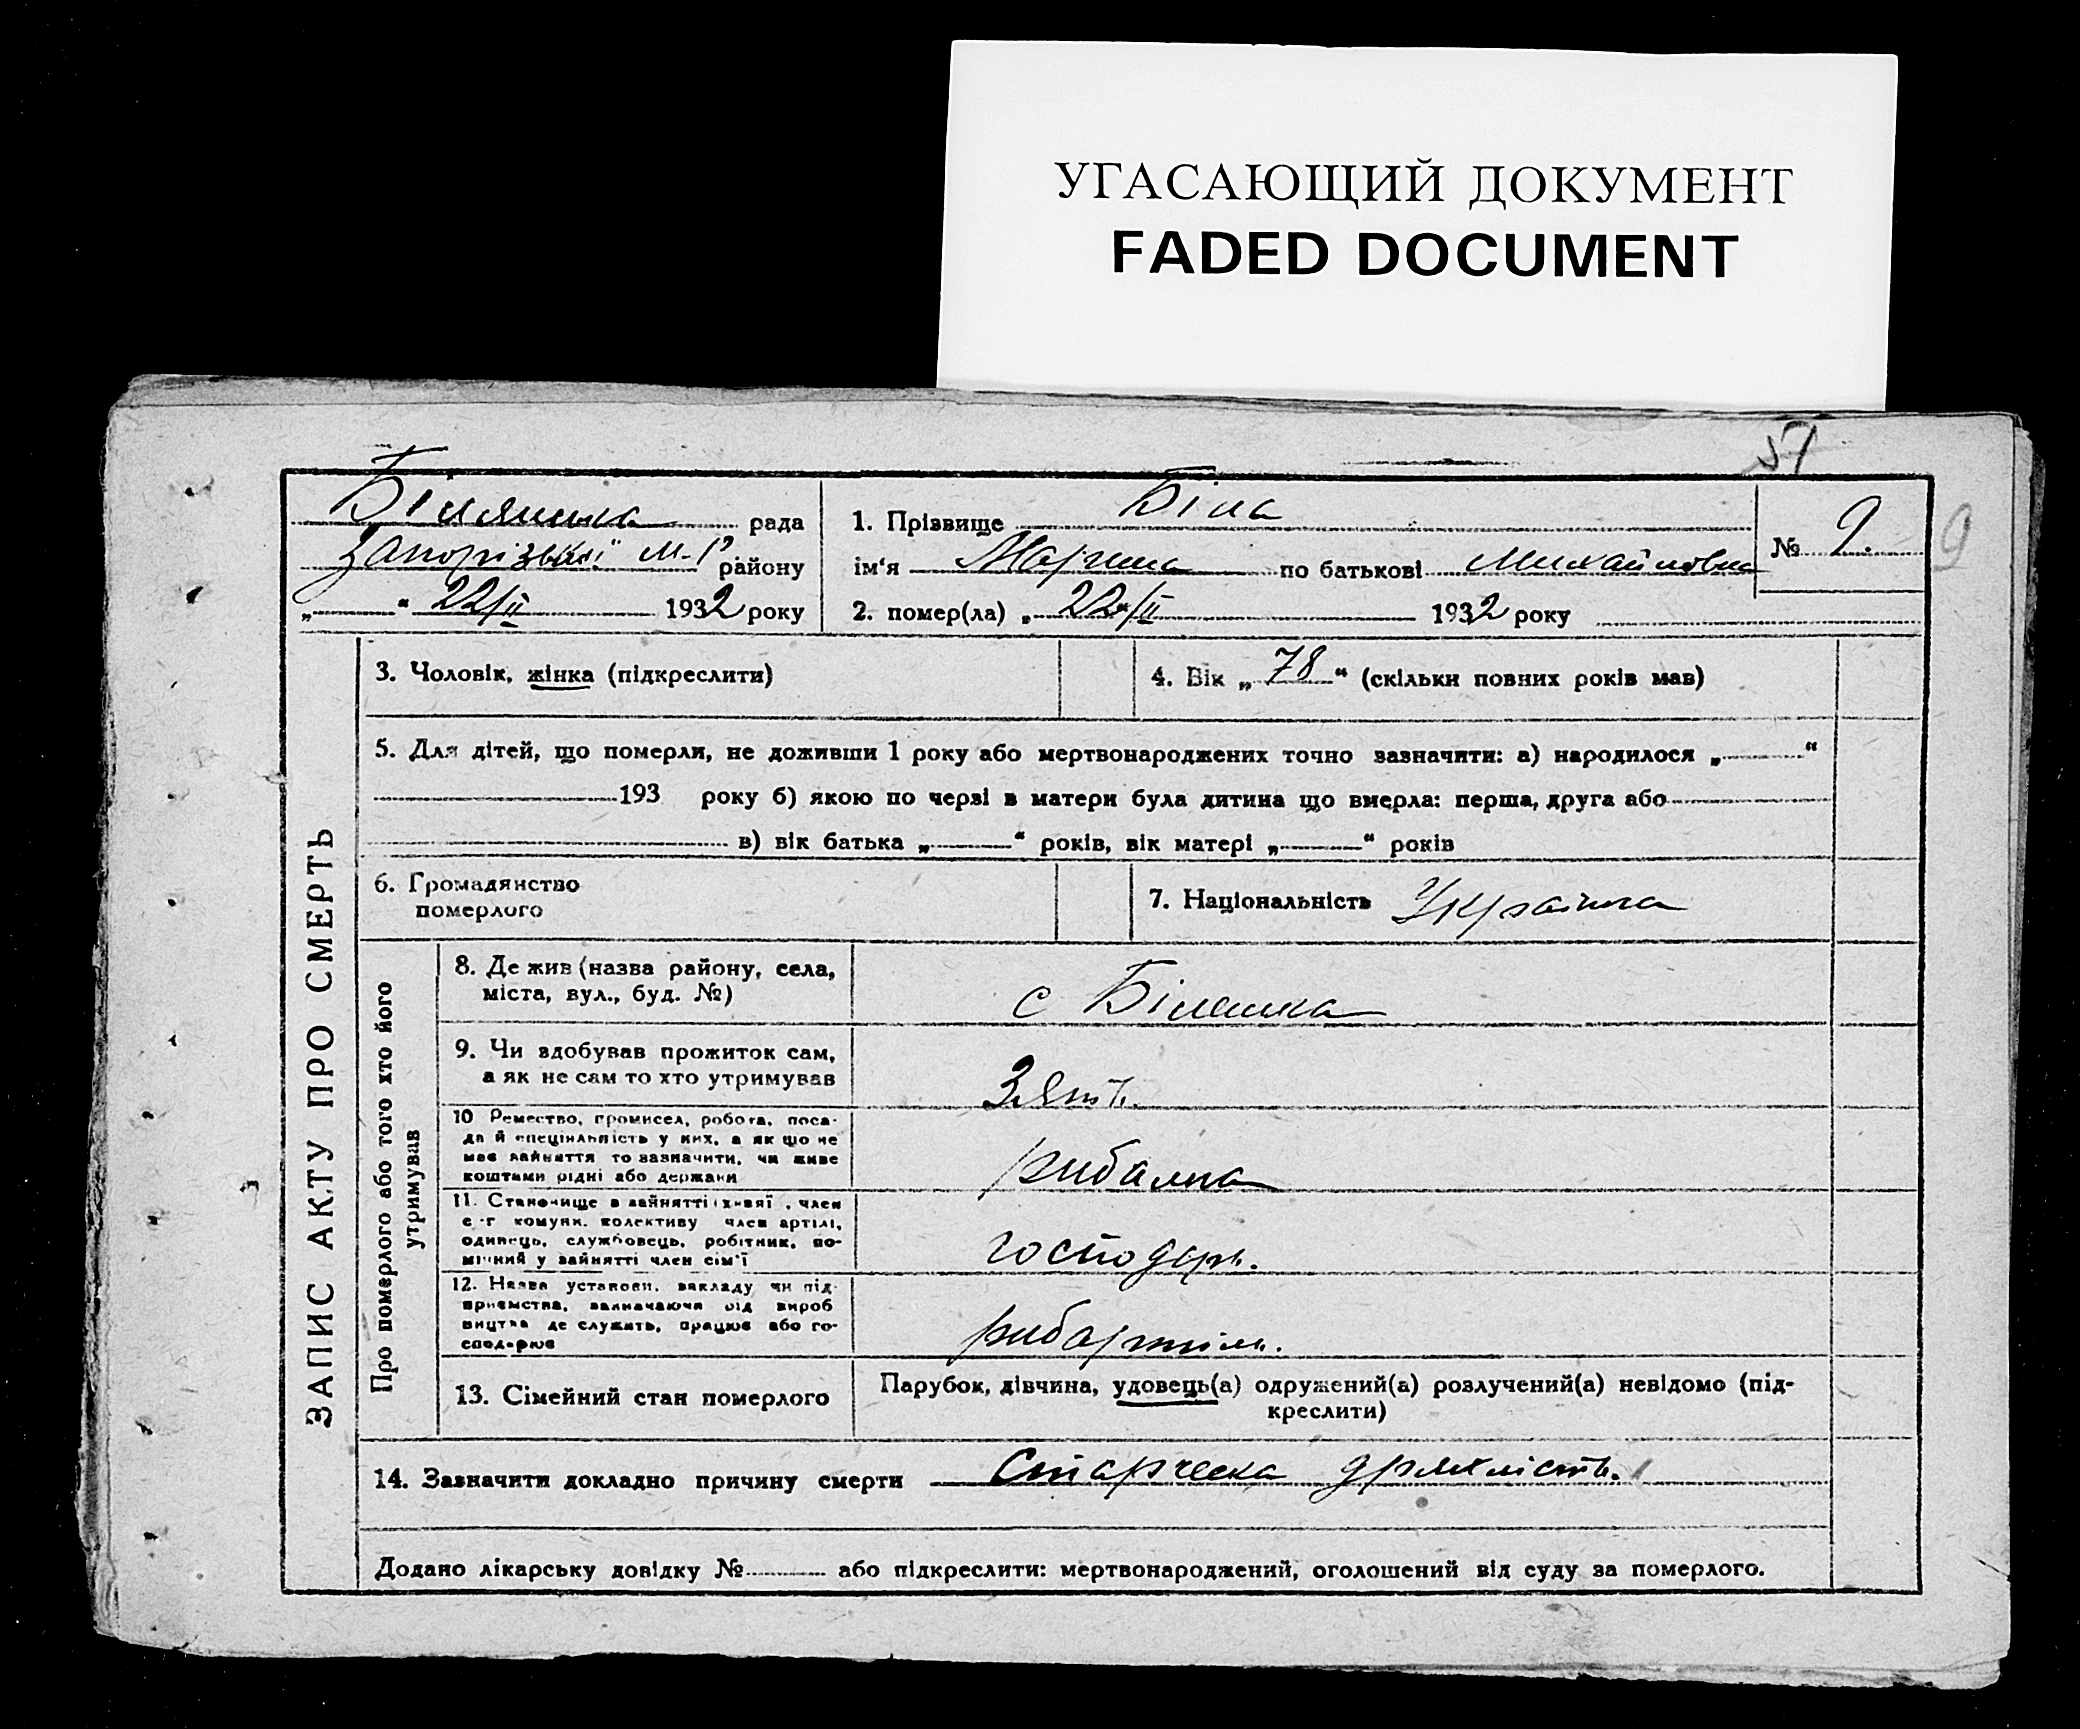 УГАСАЮЩИЙ ДОКУМЕНТ
FADED DOCUMENT
51
Біленька рада
Запорізької м-р району
„ “ 22/II 1932 року
1. Прізвище Біла
ім'я Марина по батькові Михайловна
2. помер(ла) „ 22“/II 1932 року
№ 9.
9
ЗАПИС АКТУ ПРО СМЕРТЬ
3. Чоловік, жінка (підкреслити)
4. Вік „ 78 “ (скільки повних років мав)
5. Для дітей, що померли, не доживши 1 року або мертвонароджених точно зазначити: а) народилося „ “
193 року б) якою по черзі в матери була дитина що вмерла: перша, друга або
в) вік батька „ “ років, вік матері „ “ років
6. Громадянство
померлого
7. Національність Українка
Про померлого або того хто його
утримував
8. Де жив (назва району, села,
міста, вул., буд. №)
с Біленька
9. Чи здобував прожиток сам,
а як не сам то хто утримував
Зять.
10 Ремество, промисел, робота, поса-
да й спеціяльність у них, а як що не
має зайняття то зазначити, чи живе
коштами рідні або держави
рибалка
11. Становище в зайнятті , член
с-г комуни, колективу член артілі,
одинець, службовець, робітник, по-
мічний у зайнятті член сім'ї
господарь.
12. Назва установи, закладу чи під-
приємства, зазначаючи рід вироб
ництва де служить, працює або го-
сподарює
рибартіль.
13. Сімейний стан померлого
Парубок, дівчина, удовець(а) одружений(а) розлучений(а) невідомо (під-
креслити)
14. Зазначити докладно причину смерти Старческа дряхлість.
Додано лікарську довідку № або підкреслити: мертвонароджений, оголошений від суду за померлого.